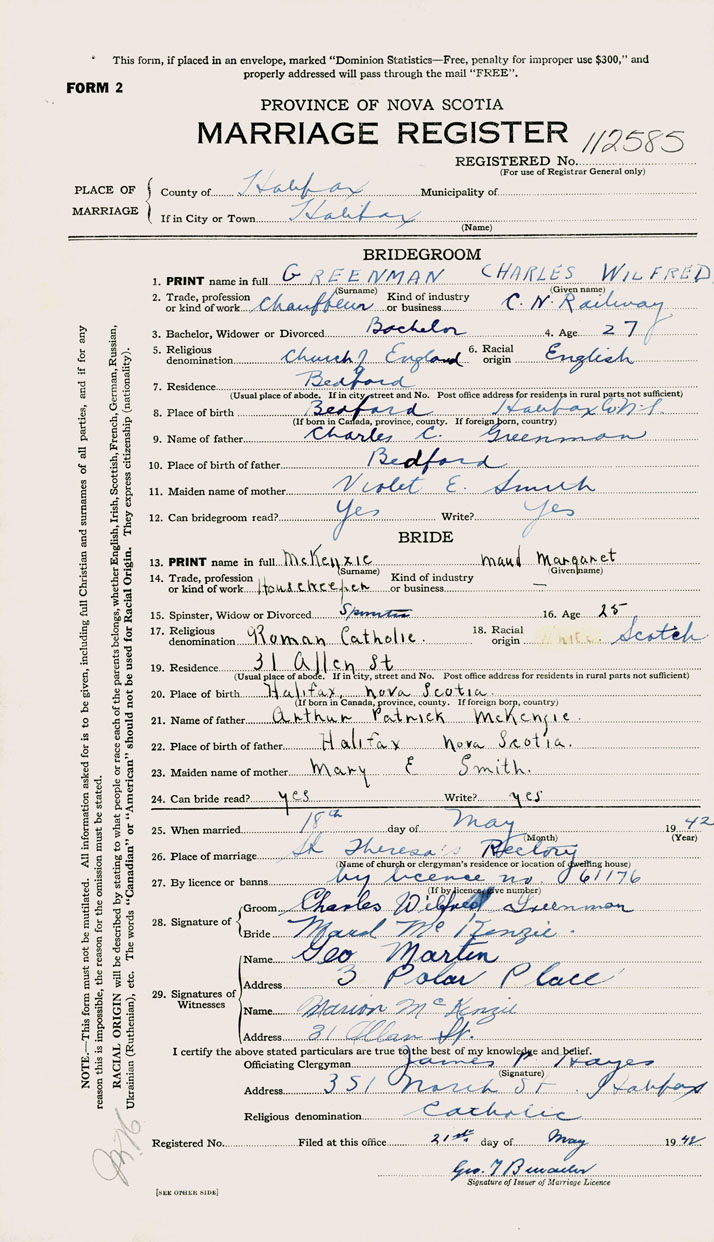 This form, if placed in an envelope, marked "Dominion Statistics—Free, penalty for improper use $300," and
properly addressed will pass through the mail "FREE".
FORM 2
PROVINCE OF NOVA SCOTIA
MARRIAGE REGISTER
112585
REGISTERED No.
(For use of Registrar General only)
PLACE OF MARRIAGE
County of Halifax Municipality of
If in City or Town Halifax
(Name)
BRIDEGROOM
1. PRINT name in full GREENMAN CHARLES WILFRED
(Surname) (Given name)
2. Trade, profession or kind of work Chauffeur Kind of industry or business C.N. Railway
3. Bachelor, Widower or Divorced Bachelor 4. Age 27
5. Religious denomination Church of England 6. Racial origin English
7. Residence Bedford
(Usual place of abode. If in city, street and No. Post office address for residents in rural parts not sufficient)
8. Place of birth Bedford Halifax Co N.S.
(If born in Canada, province, county. If foreign born, country)
9. Name of father Charles C. Greenman
10. Place of birth of father Bedford
11. Maiden name of mother Violet E. Smith
12. Can bridegroom read? Yes Write? Yes
BRIDE
13. PRINT name in full McKenzie Maud Margaret
(Surname) (Given name)
14. Trade, profession or kind of work Housekeeper Kind of industry or business —
15. Spinster, Widow or Divorced Spinster 16. Age 25
17. Religious denomination Roman Catholic. 18. Racial origin White Scotch
19. Residence 31 Allen St
(Usual place of abode. If in city, street and No. Post office address for residents in rural parts not sufficient)
20. Place of birth Halifax, Nova Scotia.
(If born in Canada, province, county. If foreign born, country)
21. Name of father Arthur Patrick McKenzie.
22. Place of birth of father Halifax Nova Scotia.
23. Maiden name of mother Mary E Smith.
24. Can bride read? yes Write? yes
25. When married 18th day of May 1942
(Month) (Year)
26. Place of marriage St Theresa's Rectory
(Name of church or clergyman's residence or location of dwelling house)
27. By licence or banns by licence no 61176
(If by licence, give number)
28. Signature of
Groom Charles Wilfred Greenman
Bride Maud McKenzie.
29. Signatures of Witnesses
Name Geo Martin
Address 3 Polar Place
Name Marion McKenzie
Address 31 Allan St.
I certify the above stated particulars are true to the best of my knowledge and belief.
Officiating Clergyman James P. Hayes
(Signature)
Address 351 North St. Halifax
Religious denomination Catholic
Registered No. Filed at this office 21st day of May 1942
Geo. T
Signature of Issuer of Marriage Licence
[SEE OTHER SIDE]
NOTE.—This form must not be mutilated. All information asked for is to be given, including full Christian and surnames of all parties, and if for any
reason this is impossible, the reason for the omission must be stated.
RACIAL ORIGIN will be described by stating to what people or race each of the parents belongs, whether English, Irish, Scottish, French, German, Russian,
Ukrainian (Ruthenian), etc. The words "Canadian" or "American" should not be used for Racial Origin. They express citizenship (nationality).